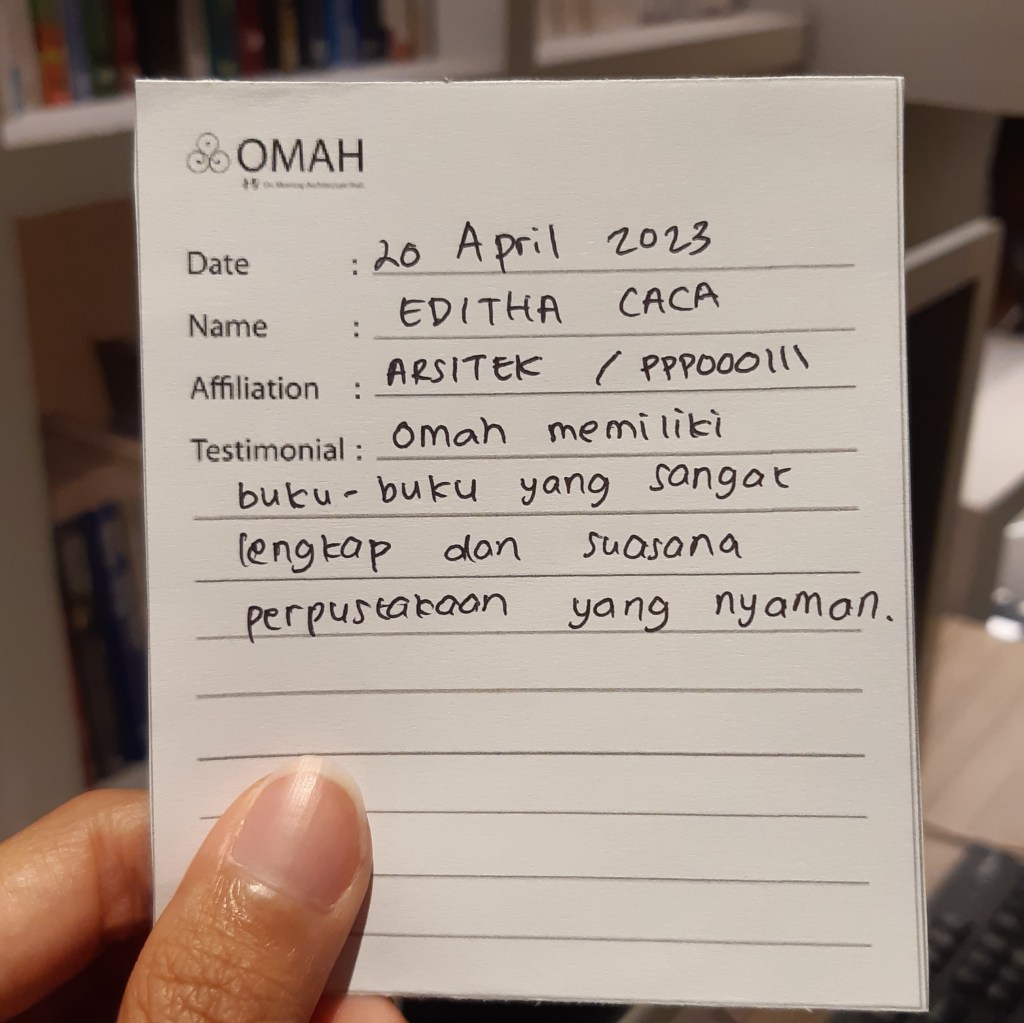 OMAH
Date : 20 April 2023
Name : EDITHA CACA
Affiliation : ARSITEK / PPPOOO111
Testimonial : Omah memiliki
buku-buku yang sangat
lengkap dan suasana
perpustakaan yang nyaman.